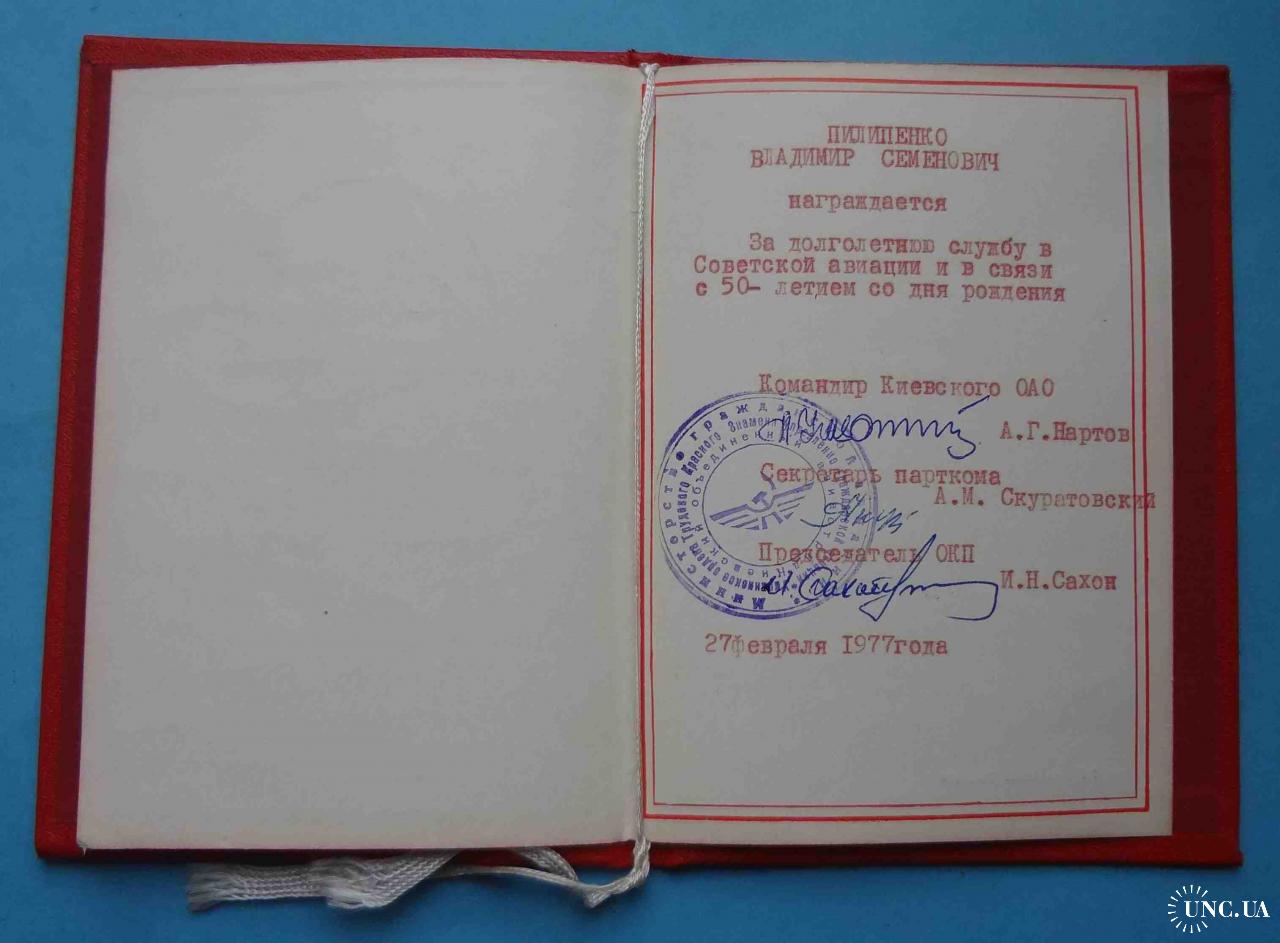 ПИЛИПЕНКО
ВЛАДИМИР СЕМЕНОВИЧ
награждается
За долголетнюю службу в
Советской авиации и в связи
с 50- летием со дня рождения
Командир Киевского ОАО
А.Г.Нартов
Секретарь парткома
А.М. Скуратовский
Председатель ОКП
И.Н.Сахон
27февраля 1977года
Министерство гражда
ордена Трудового Красного Знамени управление гражданской
Киевский объединенный
UNC.UA